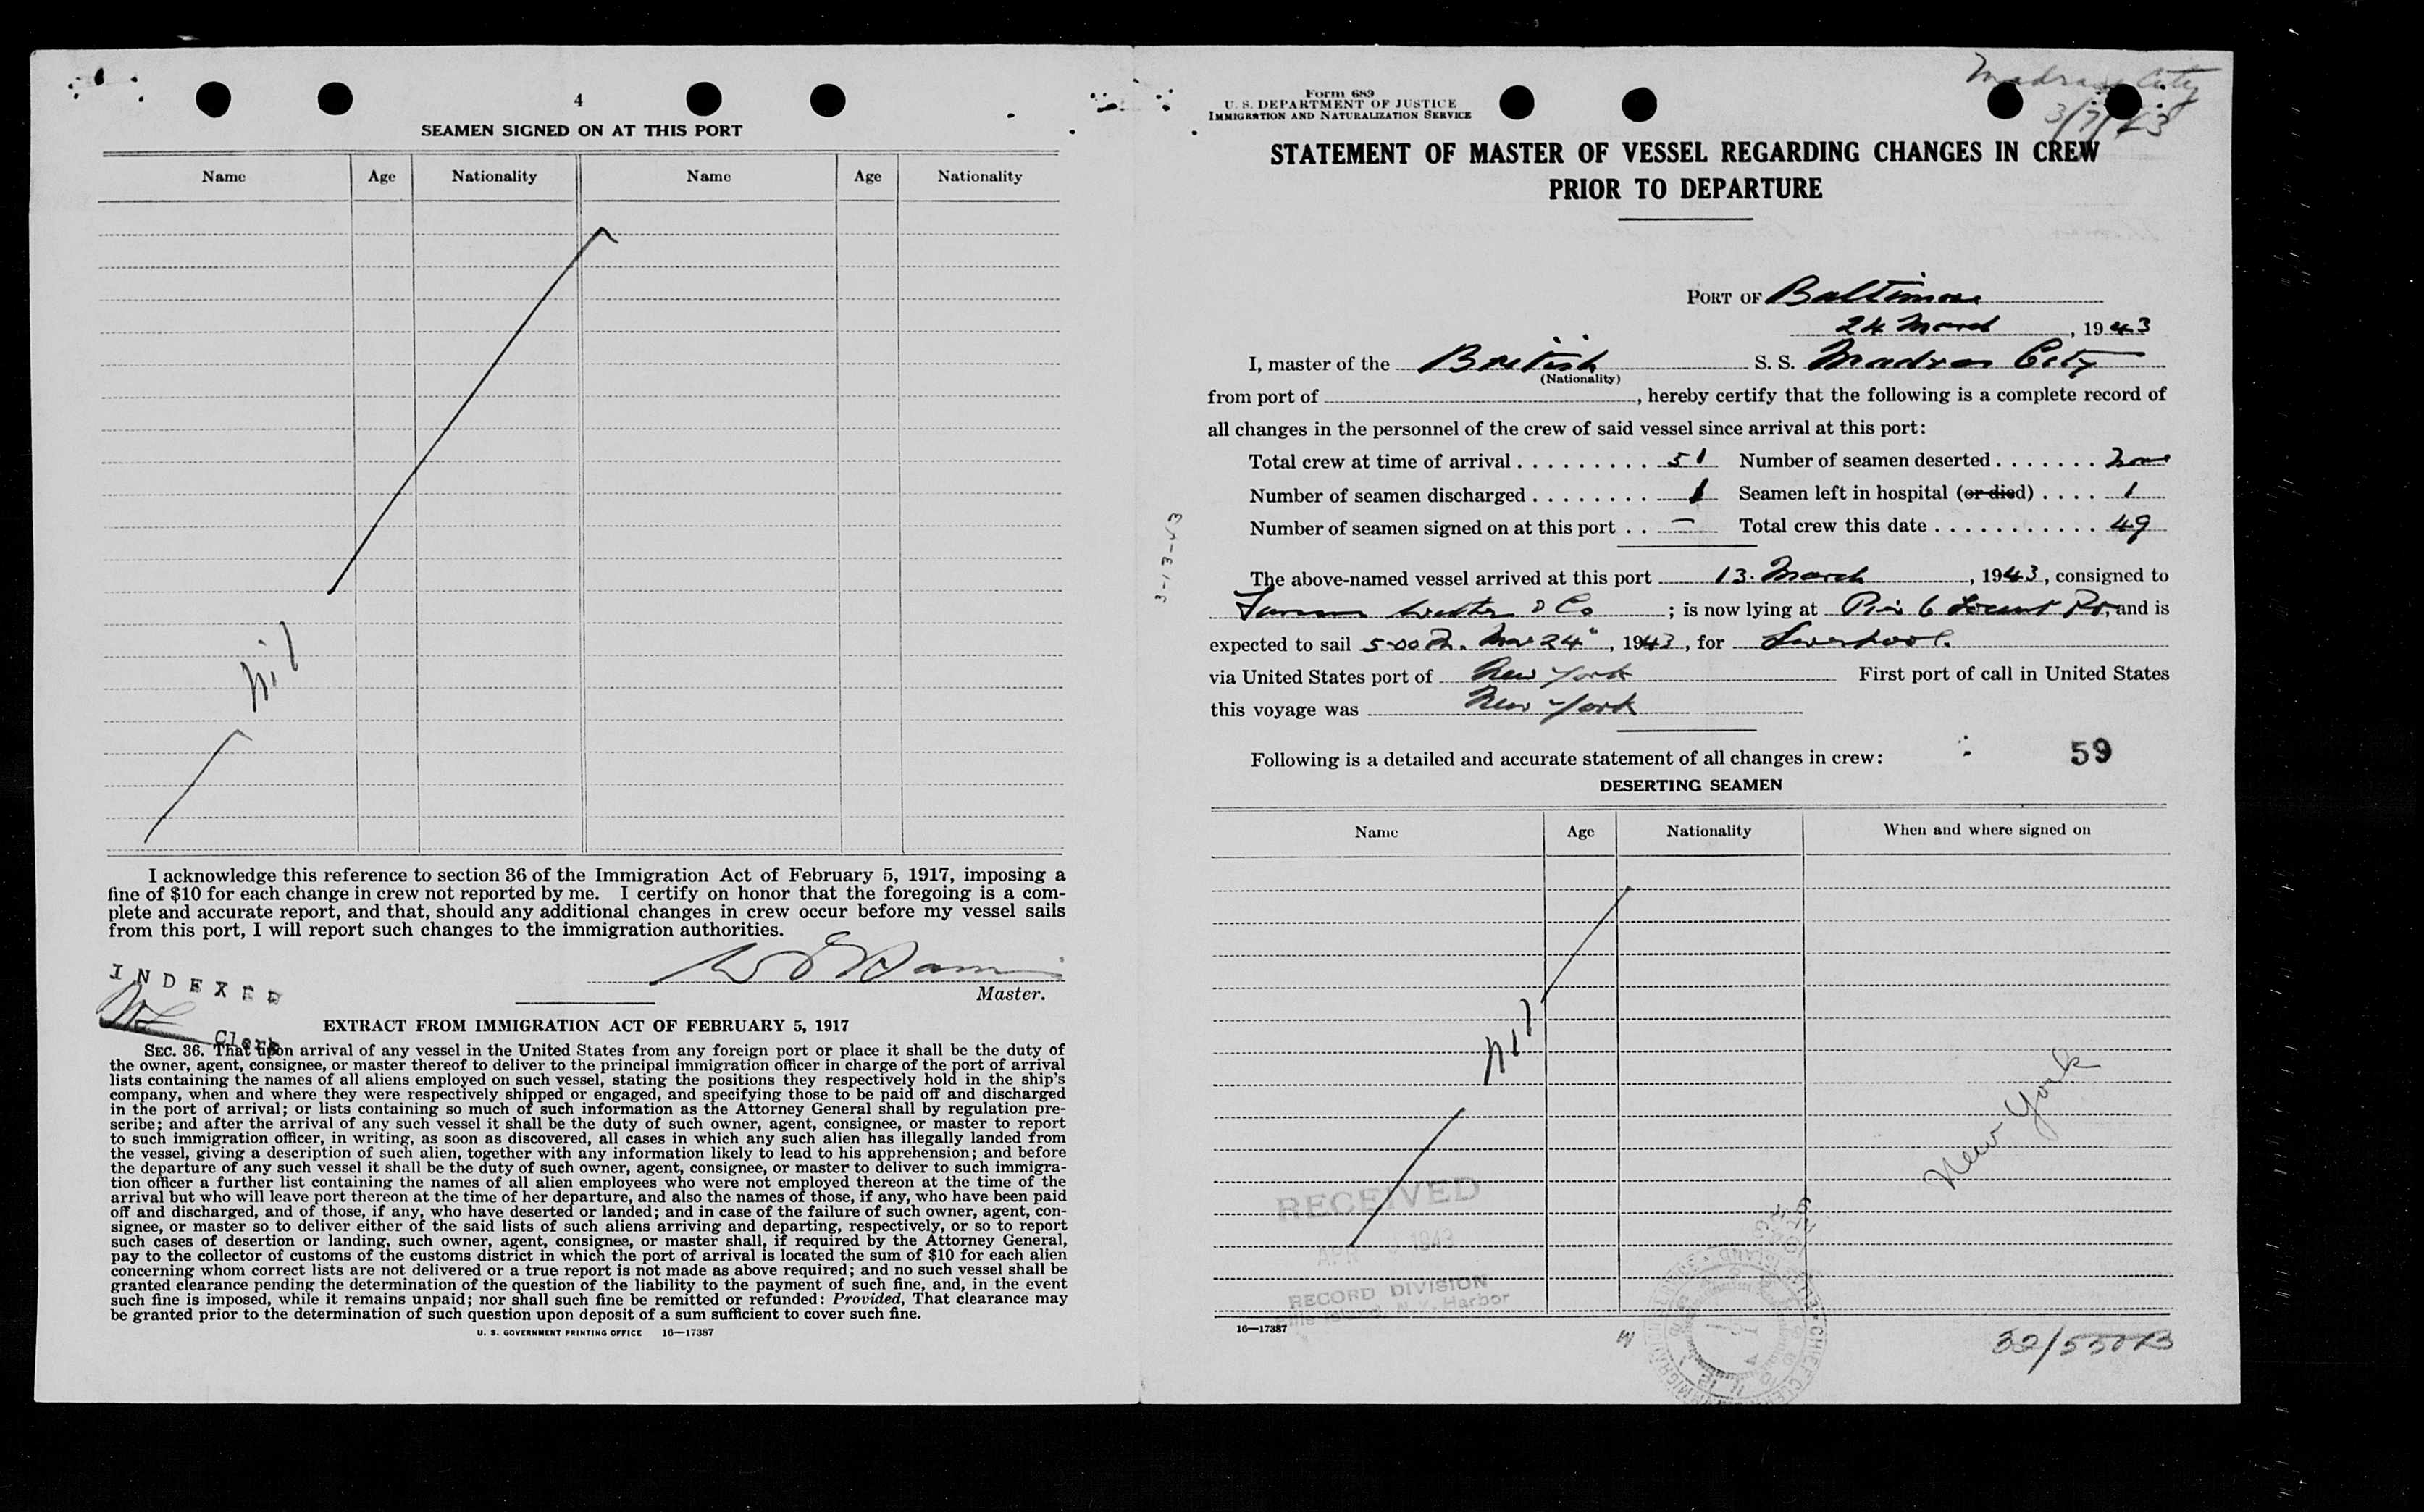 4
SEAMEN SIGNED ON AT THIS PORT
Name Age Nationality Name Age Nationality
nil
I acknowledge this reference to section 36 of the Immigration Act of February 5, 1917, imposing a
fine of $10 for each change in crew not reported by me. I certify on honor that the foregoing is a com-
plete and accurate report, and that, should any additional changes in crew occur before my vessel sails
from this port, I will report such changes to the immigration authorities.
Master.
INDEXED
Clerk
EXTRACT FROM IMMIGRATION ACT OF FEBRUARY 5, 1917
SEC. 36. That upon arrival of any vessel in the United States from any foreign port or place it shall be the duty of
the owner, agent, consignee, or master thereof to deliver to the principal immigration officer in charge of the port of arrival
lists containing the names of all aliens employed on such vessel, stating the positions they respectively hold in the ship's
company, when and where they were respectively shipped or engaged, and specifying those to be paid off and discharged
in the port of arrival; or lists containing so much of such information as the Attorney General shall by regulation pre-
scribe; and after the arrival of any such vessel it shall be the duty of such owner, agent, consignee, or master to report
to such immigration officer, in writing, as soon as discovered, all cases in which any such alien has illegally landed from
the vessel, giving a description of such alien, together with any information likely to lead to his apprehension; and before
the departure of any such vessel it shall be the duty of such owner, agent, consignee, or master to deliver to such immigra-
tion officer a further list containing the names of all alien employees who were not employed thereon at the time of the
arrival but who will leave port thereon at the time of her departure, and also the names of those, if any, who have been paid
off and discharged, and of those, if any, who have deserted or landed; and in case of the failure of such owner, agent, con-
signee, or master so to deliver either of the said lists of such aliens arriving and departing, respectively, or so to report
such cases of desertion or landing, such owner, agent, consignee, or master shall, if required by the Attorney General,
pay to the collector of customs of the customs district in which the port of arrival is located the sum of $10 for each alien
concerning whom correct lists are not delivered or a true report is not made as above required; and no such vessel shall be
granted clearance pending the determination of the question of the liability to the payment of such fine, and, in the event
such fine is imposed, while it remains unpaid; nor shall such fine be remitted or refunded: Provided, That clearance may
be granted prior to the determination of such question upon deposit of a sum sufficient to cover such fine.
U. S. GOVERNMENT PRINTING OFFICE 16—17387
Madras City
3/7/43
Form 689
U. S. DEPARTMENT OF JUSTICE
IMMIGRATION AND NATURALIZATION SERVICE
STATEMENT OF MASTER OF VESSEL REGARDING CHANGES IN CREW
PRIOR TO DEPARTURE
PORT OF Baltimore
24 March, 1943
I, master of the British S. S. Madras City
(Nationality)
from port of , hereby certify that the following is a complete record of
all changes in the personnel of the crew of said vessel since arrival at this port:
Total crew at time of arrival 51 Number of seamen deserted none
Number of seamen discharged 1 Seamen left in hospital (or died) 1
Number of seamen signed on at this port — Total crew this date 49
3-13-43
The above-named vessel arrived at this port 13 March, 1943, consigned to
Furness Withy & Co; is now lying at Pier 6 Locust Pt, and is
expected to sail 5-00 P. Mar 24", 1943, for Liverpool.
via United States port of New York First port of call in United States
this voyage was New York
Following is a detailed and accurate statement of all changes in crew: 59
DESERTING SEAMEN
Name Age Nationality When and where signed on
nil
New York
RECEIVED
APR 1943
RECORD DIVISION
Ellis Island, N. Y. Harbor
16—17387
32/550B